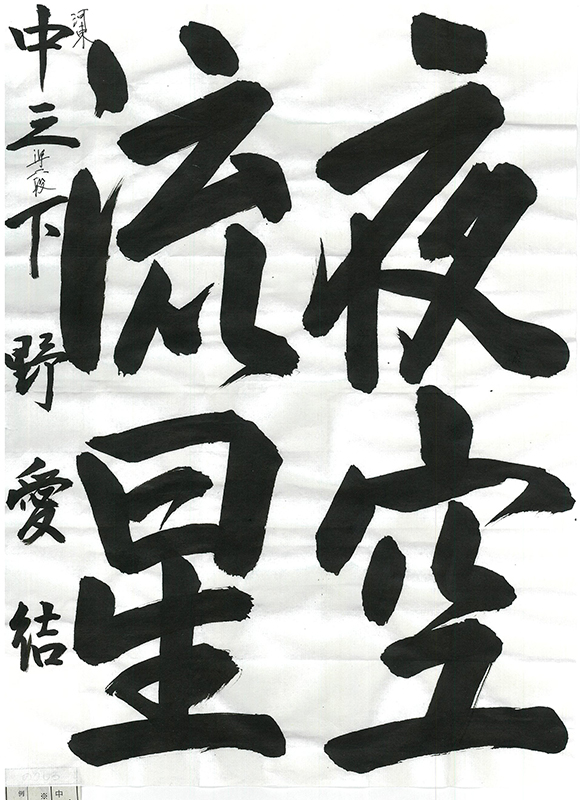 夜空
流星
河東
中三 準六段 下野愛結
中
※
例